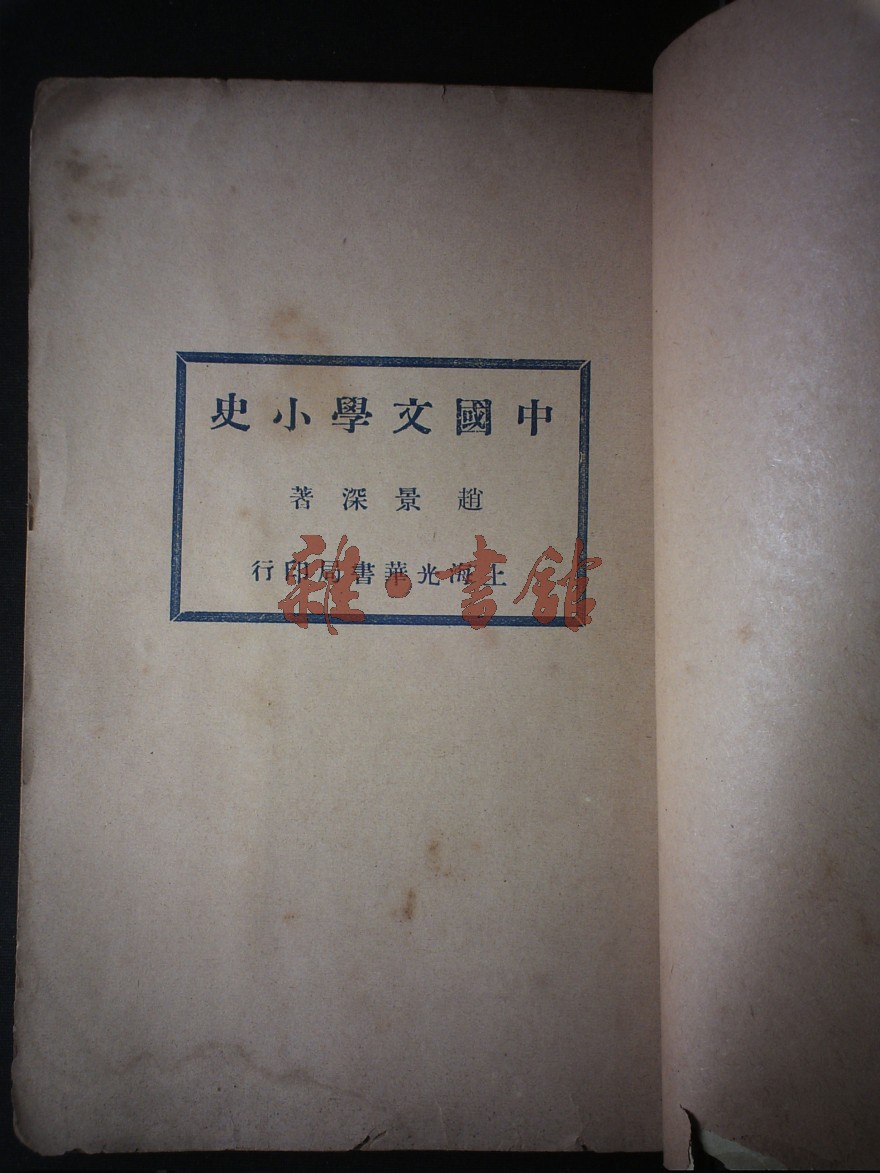 中國文學小史
趙景深著
上海光華書局印行
雜·書館